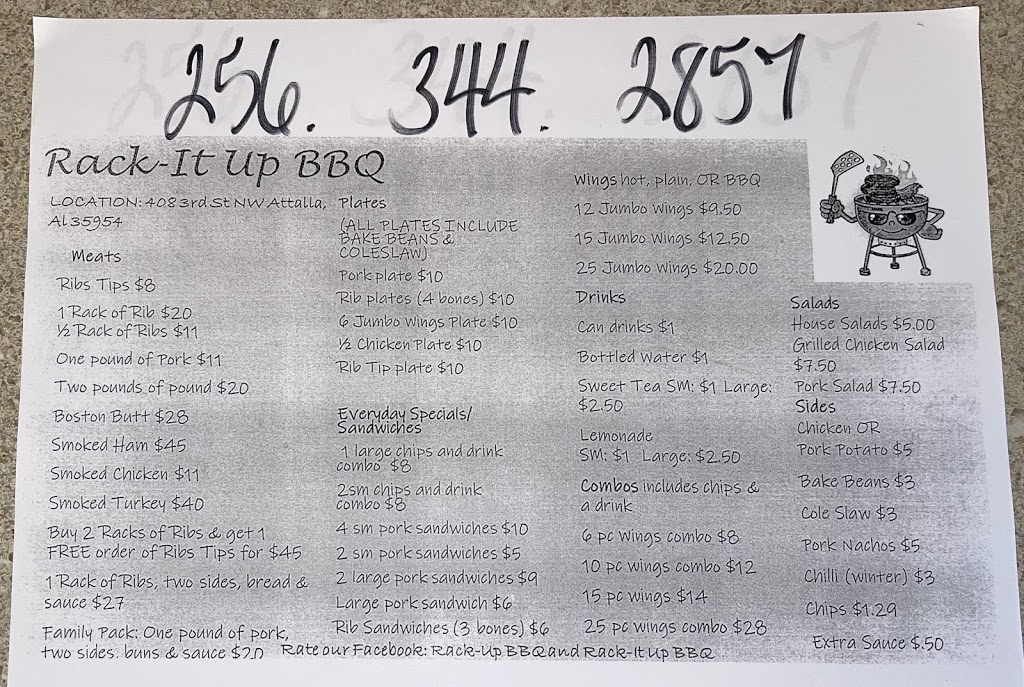 256. 344. 2857
Rack-It Up BBQ
LOCATION: 408 3rd St NW Attalla,
Al 35954
Meats
Ribs Tips $8
1 Rack of Rib $20
½ Rack of Ribs $11
One pound of Pork $11
Two pounds of pound $20
Boston Butt $28
Smoked Ham $45
Smoked Chicken $11
Smoked Turkey $40
Buy 2 Racks of Ribs & get 1
FREE order of Ribs Tips for $45
1 Rack of Ribs, two sides, bread &
sauce $27
Family Pack: One pound of pork,
two sides, buns & sauce $20
Plates
(ALL PLATES INCLUDE
BAKE BEANS &
COLESLAW)
Pork plate $10
Rib plates (4 bones) $10
6 Jumbo Wings Plate $10
½ Chicken Plate $10
Rib Tip plate $10
Everyday Specials/
Sandwiches
1 large chips and drink
combo $8
2sm chips and drink
combo $8
4 sm pork sandwiches $10
2 sm pork sandwiches $5
2 large pork sandwiches $9
Large pork sandwich $6
Rib Sandwiches (3 bones) $6
Wings hot, plain, OR BBQ
12 Jumbo Wings $9.50
15 Jumbo Wings $12.50
25 Jumbo Wings $20.00
Drinks
Can drinks $1
Bottled Water $1
Sweet Tea SM: $1 Large:
$2.50
Lemonade
SM: $1 Large: $2.50
Combos includes chips &
a drink
6 pc Wings combo $8
10 pc wings combo $12
15 pc wings $14
25 pc wings combo $28
Salads
House Salads $5.00
Grilled Chicken Salad
$7.50
Pork Salad $7.50
Sides
Chicken OR
Pork Potato $5
Bake Beans $3
Cole Slaw $3
Pork Nachos $5
Chilli (winter) $3
Chips $1.29
Extra Sauce $.50
Rate our Facebook: Rack-Up BBQ and Rack-It Up BBQ